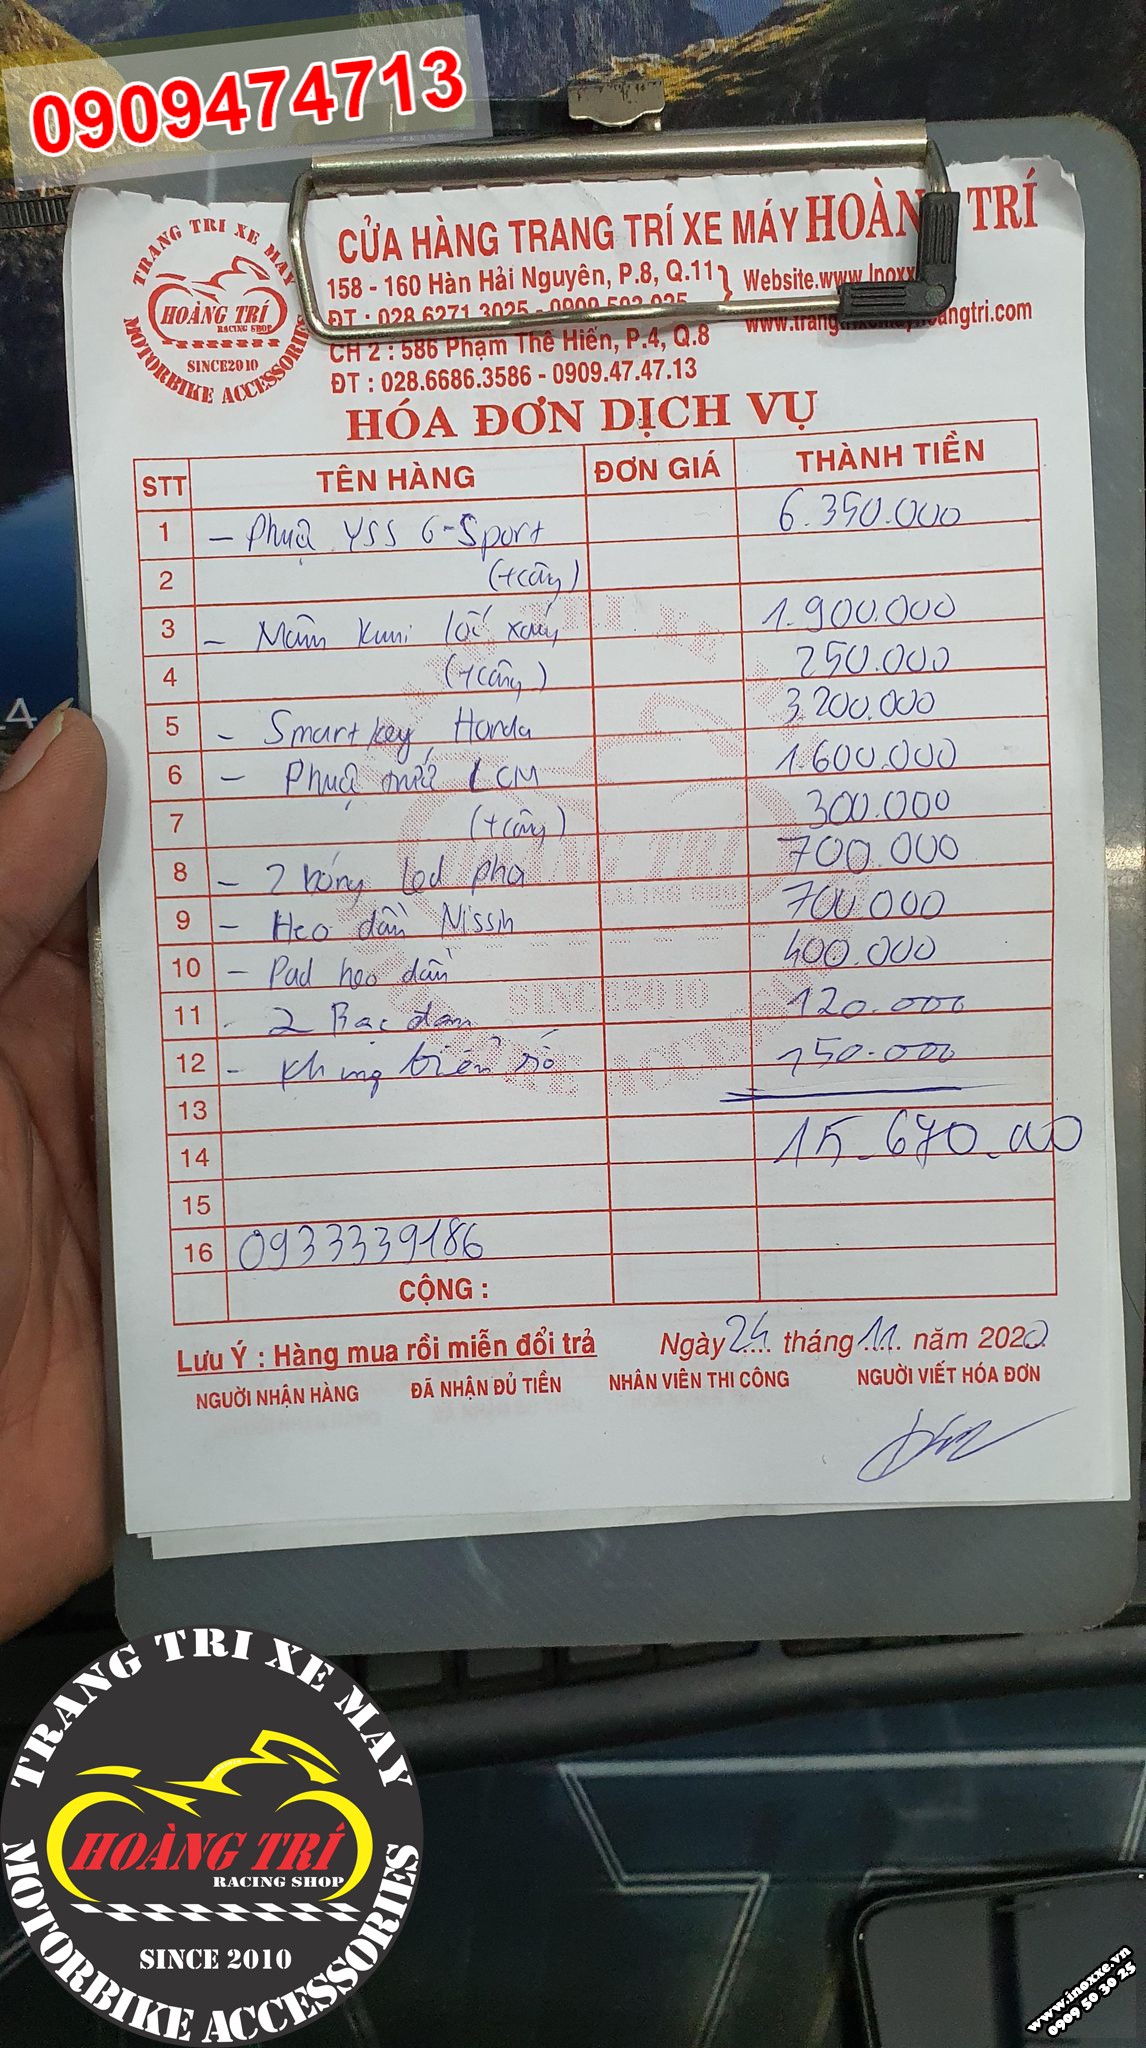 0909474713
TRANG TRI XE MAY
HOÀNG TRÍ
RACING SHOP
SINCE2010
MOTORBIKE ACCESSORIES
CỬA HÀNG TRANG TRÍ XE MÁY HOÀNG TRÍ
158 - 160 Hàn Hải Nguyên, P.8, Q.11
Website.www.Inoxx
ĐT : 028.6271.3025 - 0909.503.025
CH 2 : 586 Phạm Thế Hiển, P.4, Q.8
ĐT : 028.6686.3586 - 0909.47.47.13
HÓA ĐƠN DỊCH VỤ
STT TÊN HÀNG ĐƠN GIÁ THÀNH TIỀN
1 - Phuộc YSS G-Sport 6.350.000
2 (+công)
3 - Mâm Kuni lốc xoáy 1.900.000
4 (+công) 250.000
5 - Smartkey Honda 3.200.000
6 - Phuộc LCM 1.600.000
7 (+công) 300.000
8 - 2 bóng led pha 700.000
9 - Heo dầu Nissin 700.000
10 - Pad heo dầu 400.000
11 - 2 Bạc đạn 120.000
12 - Khung biển số 150.000
13
14 15.670.000
15
16 0933339186
CỘNG :
Lưu Ý : Hàng mua rồi miễn đổi trả
Ngày 24 tháng 11 năm 2020
NGƯỜI NHẬN HÀNG ĐÃ NHẬN ĐỦ TIỀN NHÂN VIÊN THI CÔNG NGƯỜI VIẾT HÓA ĐƠN
TRANG TRI XE MAY
HOÀNG TRÍ
RACING SHOP
SINCE 2010
MOTORBIKE ACCESSORIES
www.inoxxe.vn
0909 50 30 25